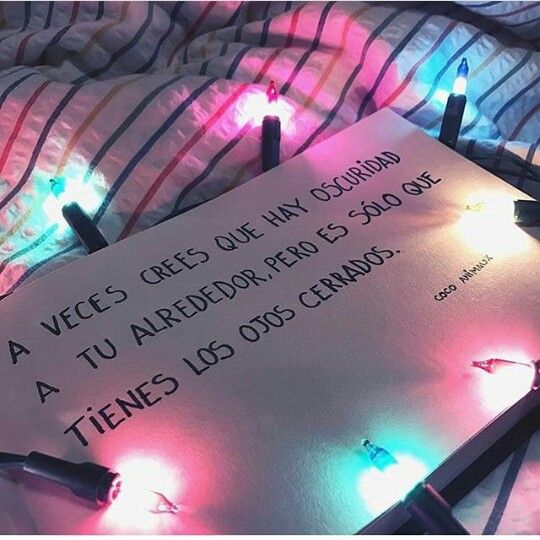 A VECES CREES QUE HAY OSCURIDAD
A TU ALREDEDOR, PERO ES SÓLO QUE
TIENES LOS OJOS CERRADOS.
COCO ANIMALXX